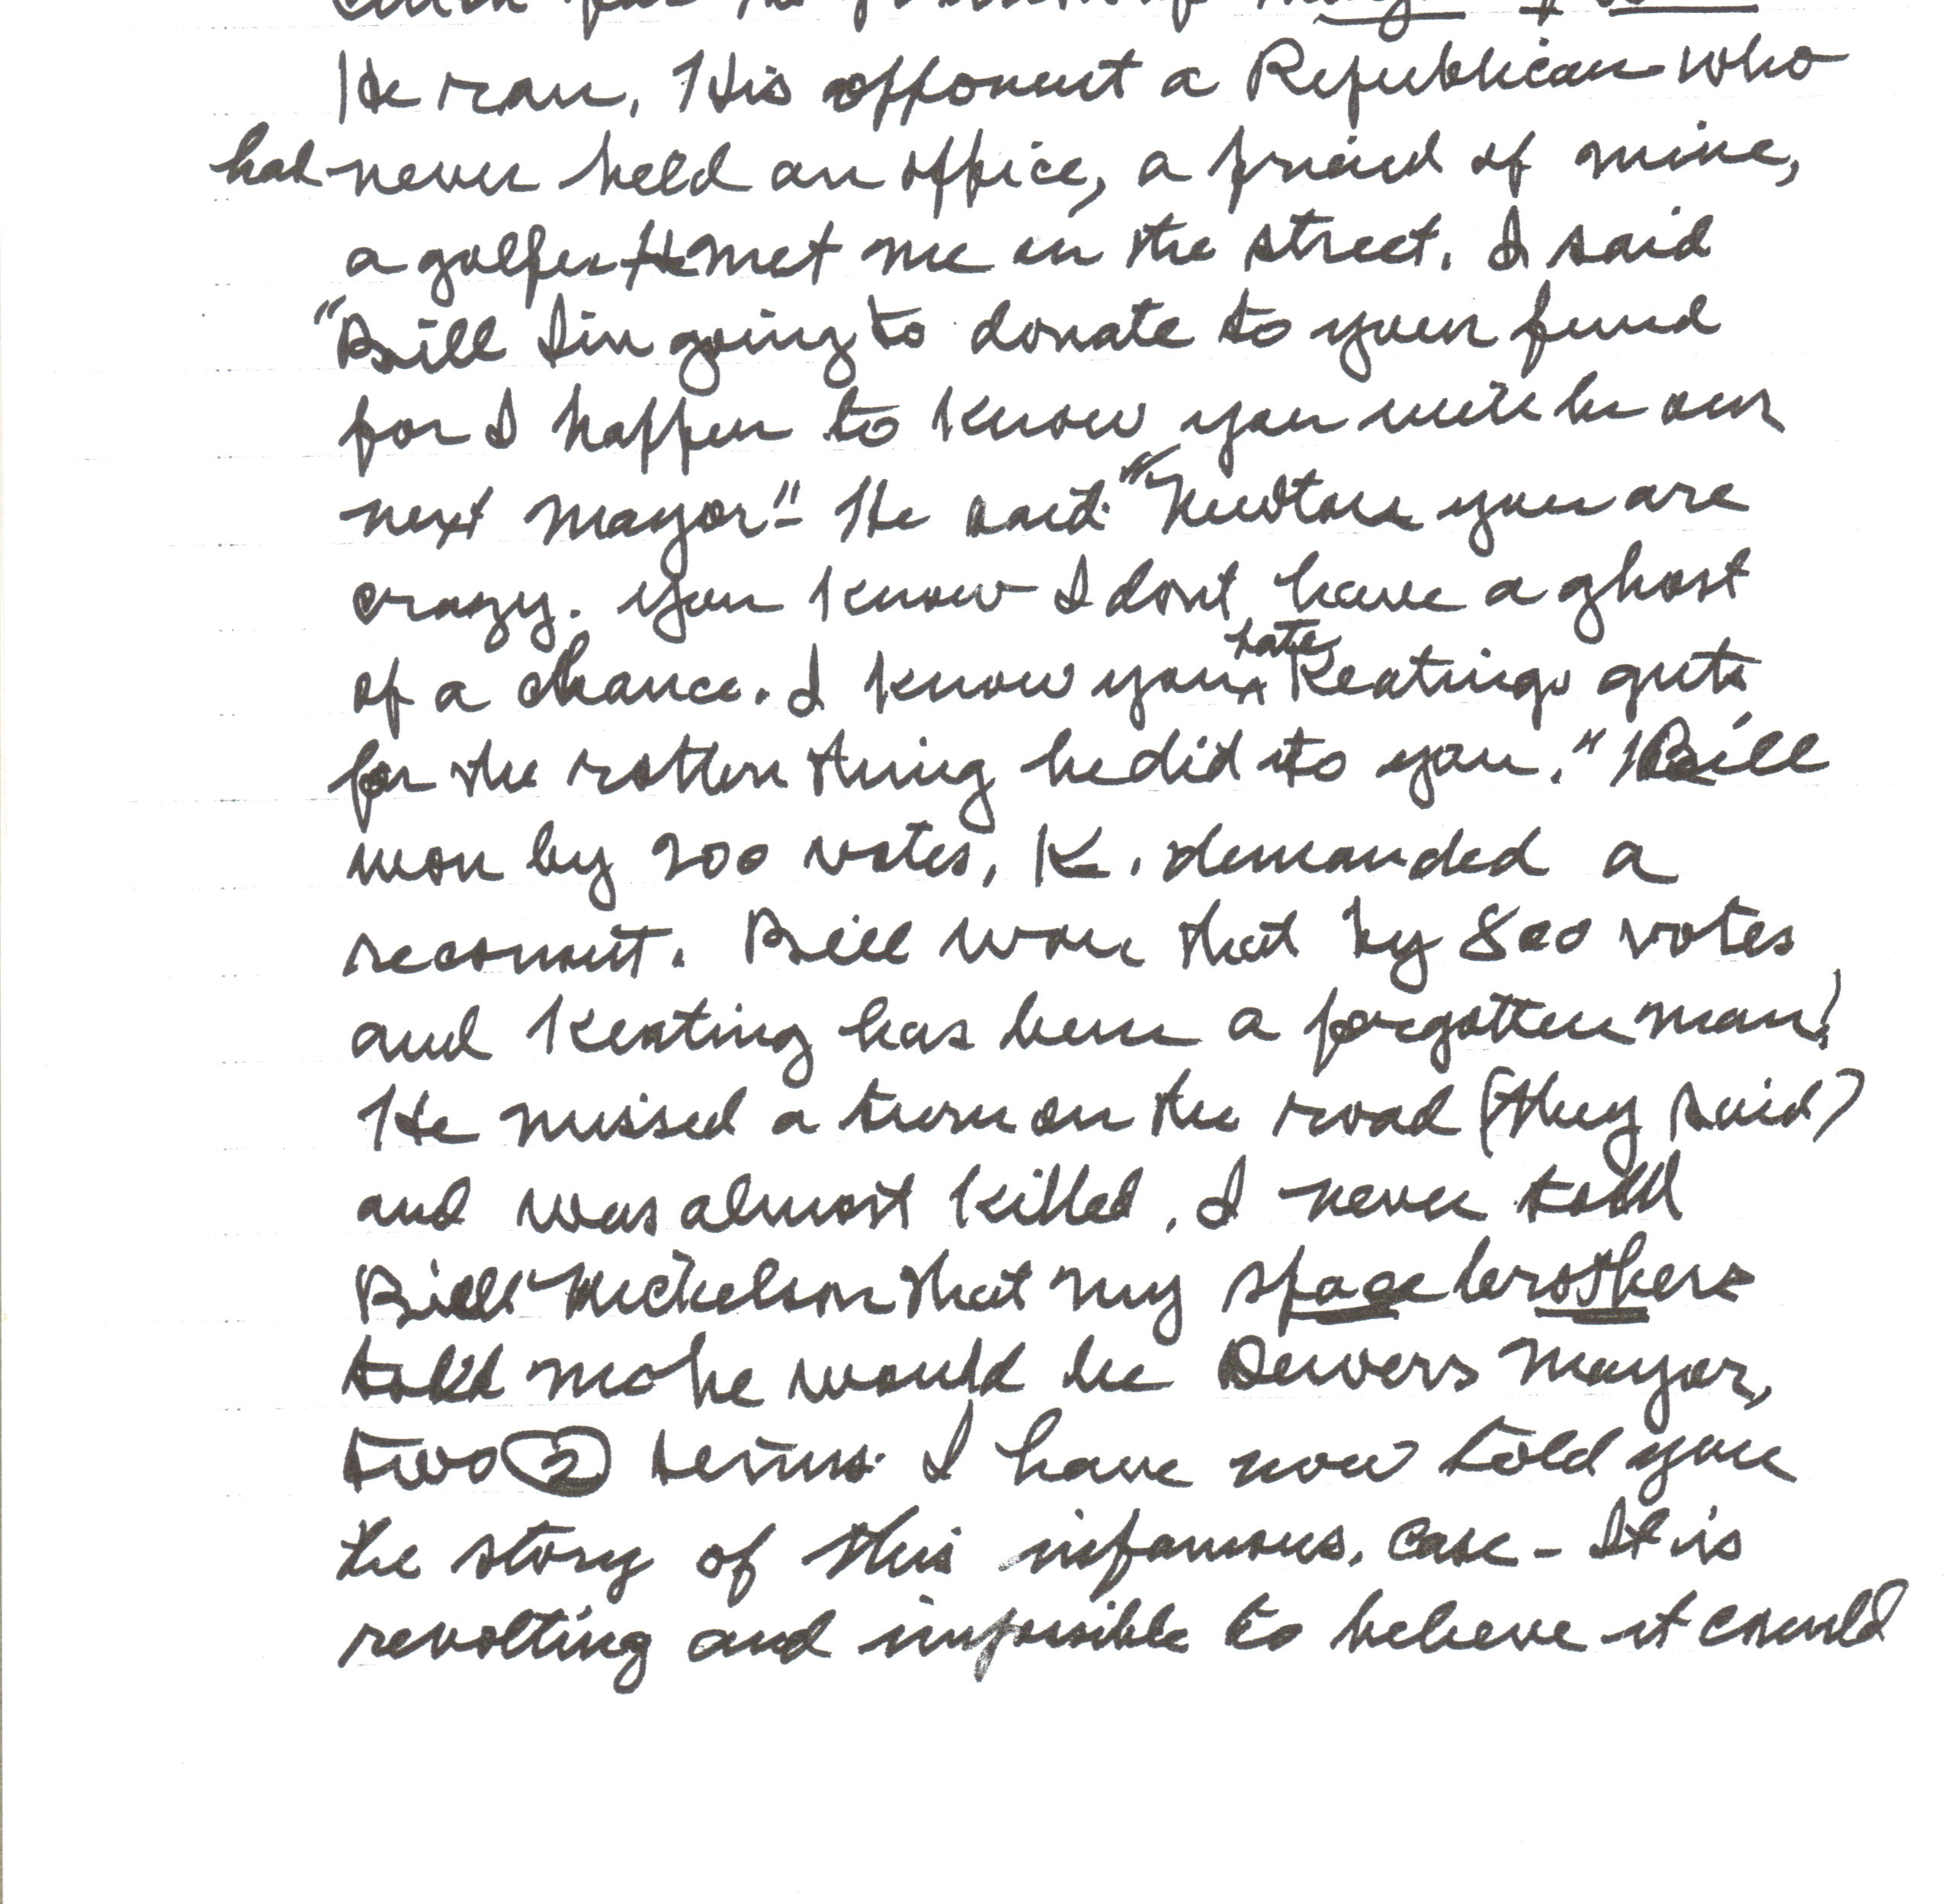 He ran, His opponent a Republican who
had never held an office, a friend of mine,
a golfer He met me in the street. I said
"Bill I'm going to donate to your fund
for I happen to know you will be our
next mayor" - He said "Newton you are
crazy. You know I dont have a ghost
of a chance. I know you hate Keatings guts
for the rotten thing he did to you." Bill
won by 200 votes, K. demanded a
recount. Bill won that by 800 votes
and Keating has been a forgotten man!
He missed a turn on the road (they said)
and was almost killed, I never told
Bill Nickelson that my space brothers
told me he would be Denvers mayor,
two (2) terms. I have now told you
the story of this infamous, case - It is
revolting and impossible to believe it could